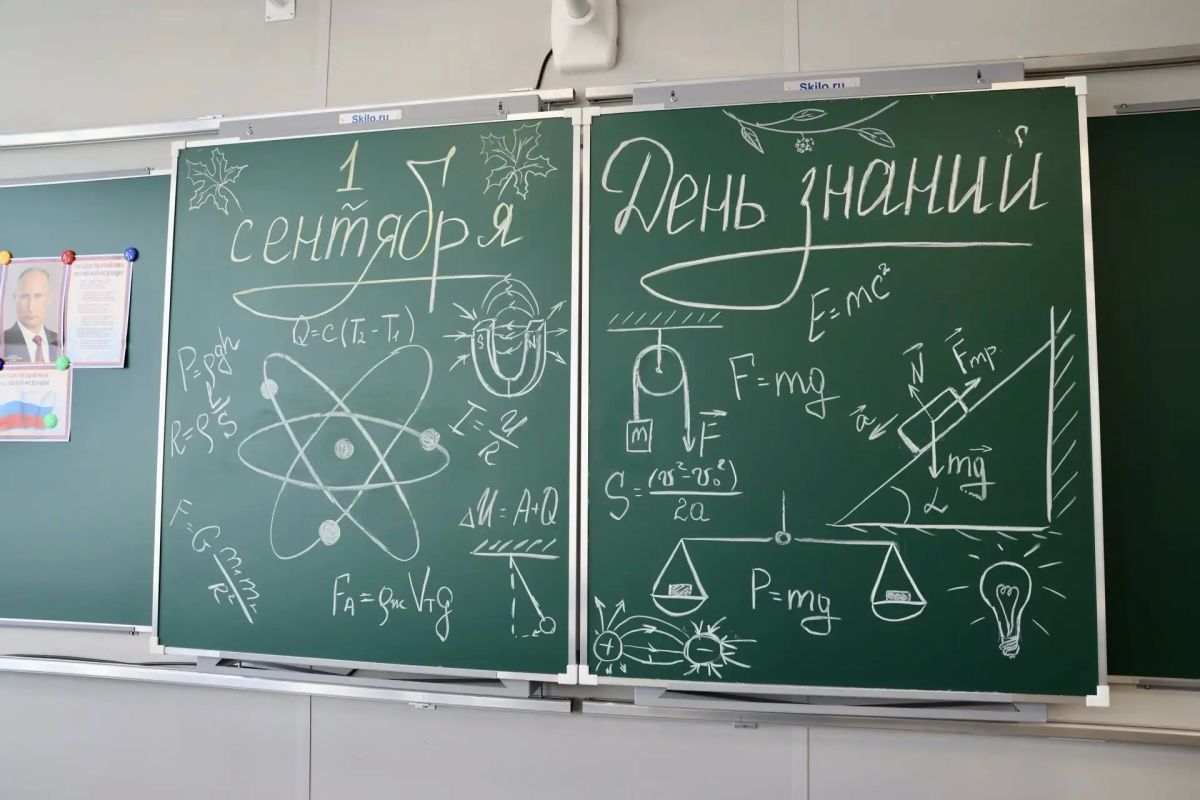 Skilo.ru
1
сентября
Q=c(T₂-T₁)
P=ρgh
S N
I=U/R
ΔU=A+Q
Fₐ=ρжVтg
Skilo.ru
День знаний
E=mc²
F=mg
m
F⃗
N⃗
F⃗тр
a⃗
mg⃗
α
S=(v²-v₀²)/2a
P=mg
+ -